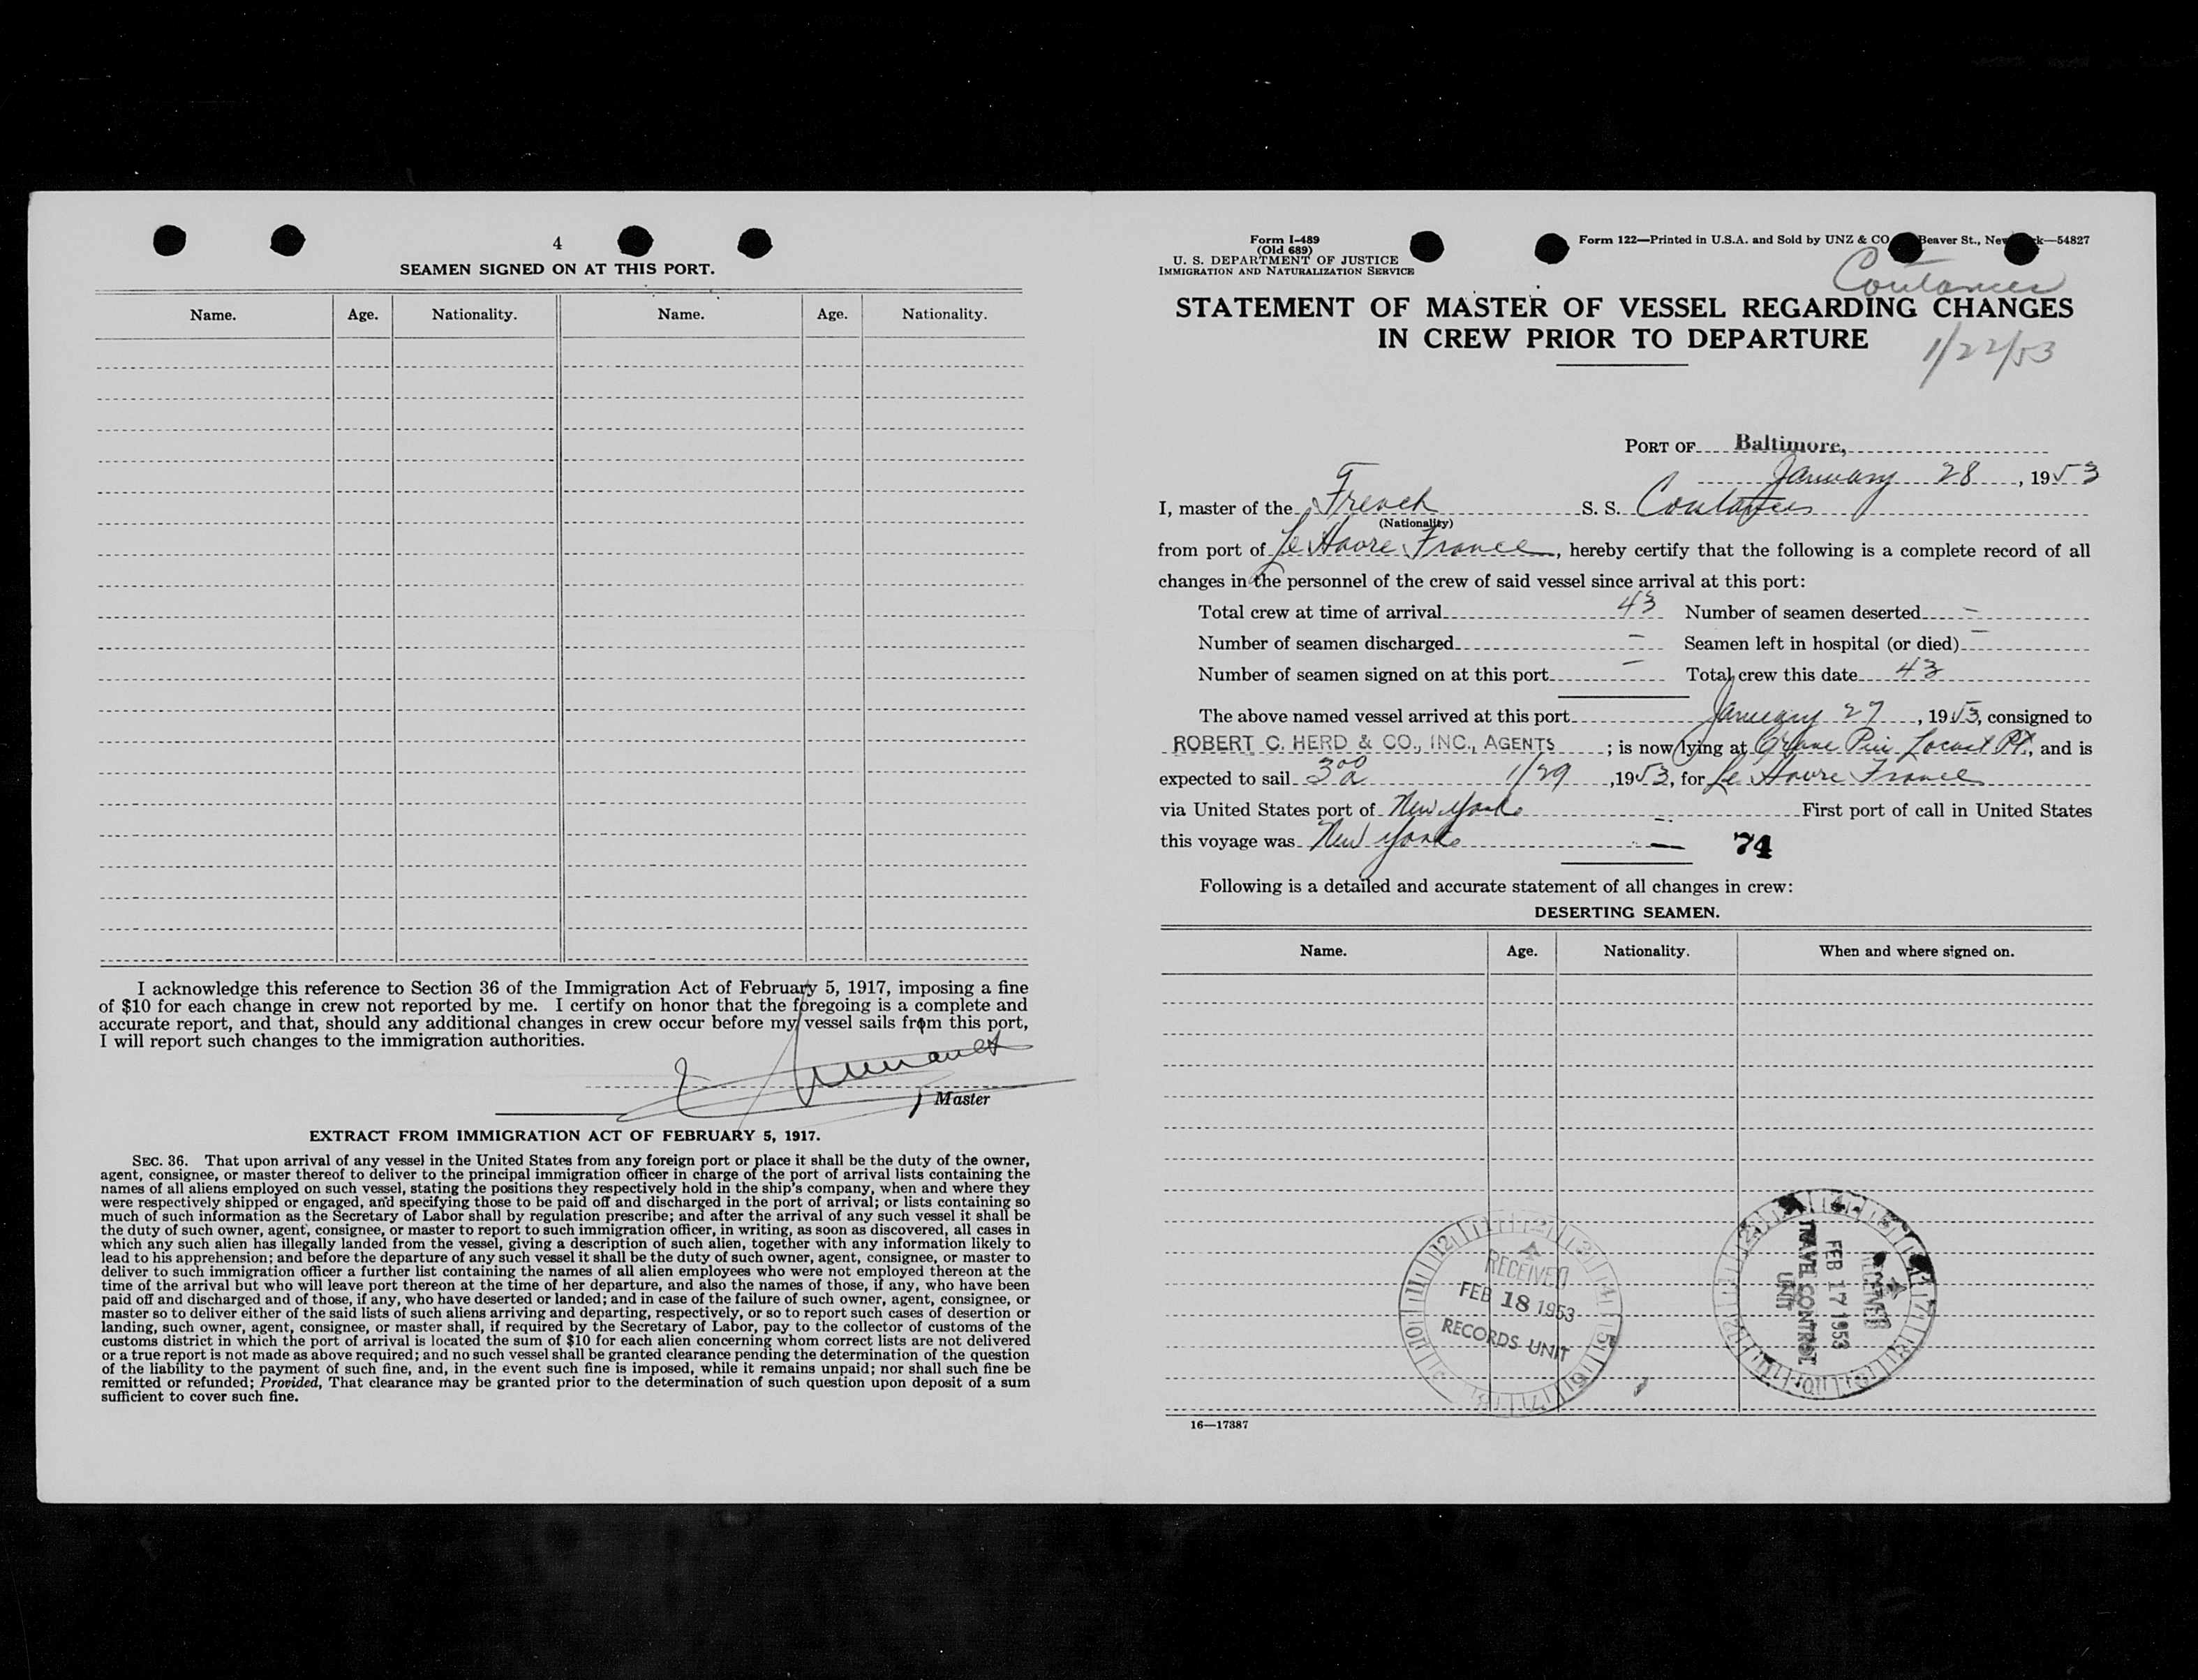 4
SEAMEN SIGNED ON AT THIS PORT.
Name. Age. Nationality. Name. Age. Nationality.
I acknowledge this reference to Section 36 of the Immigration Act of February 5, 1917, imposing a fine
of $10 for each change in crew not reported by me. I certify on honor that the foregoing is a complete and
accurate report, and that, should any additional changes in crew occur before my vessel sails from this port,
I will report such changes to the immigration authorities.
Master
EXTRACT FROM IMMIGRATION ACT OF FEBRUARY 5, 1917.
SEC. 36. That upon arrival of any vessel in the United States from any foreign port or place it shall be the duty of the owner,
agent, consignee, or master thereof to deliver to the principal immigration officer in charge of the port of arrival lists containing the
names of all aliens employed on such vessel, stating the positions they respectively hold in the ship's company, when and where they
were respectively shipped or engaged, and specifying those to be paid off and discharged in the port of arrival; or lists containing so
much of such information as the Secretary of Labor shall by regulation prescribe; and after the arrival of any such vessel it shall be
the duty of such owner, agent, consignee, or master to report to such immigration officer, in writing, as soon as discovered, all cases in
which any such alien has illegally landed from the vessel, giving a description of such alien, together with any information likely to
lead to his apprehension; and before the departure of any such vessel it shall be the duty of such owner, agent, consignee, or master to
deliver to such immigration officer a further list containing the names of all alien employees who were not employed thereon at the
time of the arrival but who will leave port thereon at the time of her departure, and also the names of those, if any, who have been
paid off and discharged and of those, if any, who have deserted or landed; and in case of the failure of such owner, agent, consignee, or
master so to deliver either of the said lists of such aliens arriving and departing, respectively, or so to report such cases of desertion or
landing, such owner, agent, consignee, or master shall, if required by the Secretary of Labor, pay to the collector of customs of the
customs district in which the port of arrival is located the sum of $10 for each alien concerning whom correct lists are not delivered
or a true report is not made as above required; and no such vessel shall be granted clearance pending the determination of the question
of the liability to the payment of such fine, and, in the event such fine is imposed, while it remains unpaid; nor shall such fine be
remitted or refunded; Provided, That clearance may be granted prior to the determination of such question upon deposit of a sum
sufficient to cover such fine.
Form I-489
(Old 689)
U. S. DEPARTMENT OF JUSTICE
IMMIGRATION AND NATURALIZATION SERVICE
Form 122—Printed in U.S.A. and Sold by UNZ & CO Beaver St., New k—54827
Coutances
STATEMENT OF MASTER OF VESSEL REGARDING CHANGES
IN CREW PRIOR TO DEPARTURE
1/22/53
PORT OF Baltimore,
January 28, 1953
I, master of the French S. S. Coutances
(Nationality)
from port of Le Havre, France, hereby certify that the following is a complete record of all
changes in the personnel of the crew of said vessel since arrival at this port:
Total crew at time of arrival 43 Number of seamen deserted —
Number of seamen discharged — Seamen left in hospital (or died) —
Number of seamen signed on at this port — Total crew this date 43
The above named vessel arrived at this port January 27, 1953, consigned to
ROBERT C. HERD & CO., INC., AGENTS; is now lying at Locust Pt, and is
expected to sail 1/29, 1953, for Le Havre France
via United States port of New York First port of call in United States
this voyage was New York — 74
Following is a detailed and accurate statement of all changes in crew:
DESERTING SEAMEN.
Name. Age. Nationality. When and where signed on.
RECEIVED
FEB 18 1953
RECORDS UNIT
RECEIVED
FEB 17 1953
TRAVEL CONTROL
UNIT
16—17387